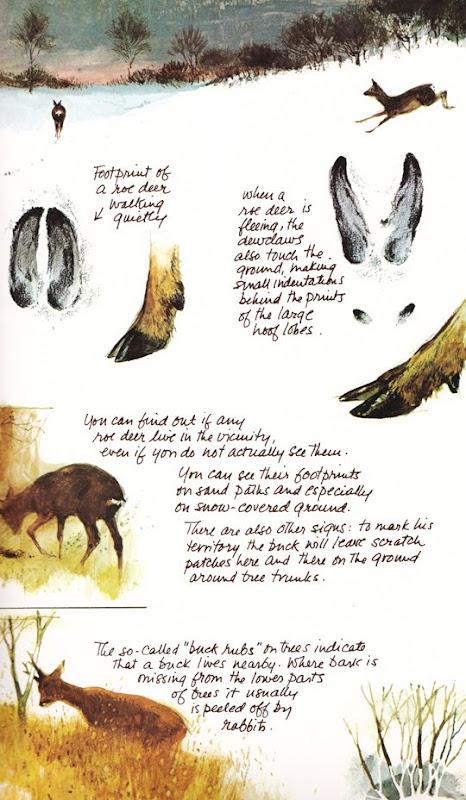 Footprint of
a roe deer
walking
quietly
when a
roe deer is
fleeing, the
dewclaws
also touch the
ground, making
small indentations
behind the prints
of the large
hoof lobes.
You can find out if any
roe deer live in the vicinity,
even if you do not actually see them.
You can see their footprints
on sand paths and especially
on snow-covered ground.
There are also other signs: to mark his
territory the buck will leave scratch
patches here and there on the ground
around tree trunks.
The so-called "buck rubs" on trees indicate
that a buck lives nearby. Where bark is
missing from the lower parts
of trees it usually
is peeled off by
rabbits.